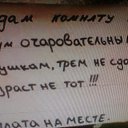 дам комнату
м очаровательны
ушкам, трем не сда
раст не тот!!!
лата на месте.